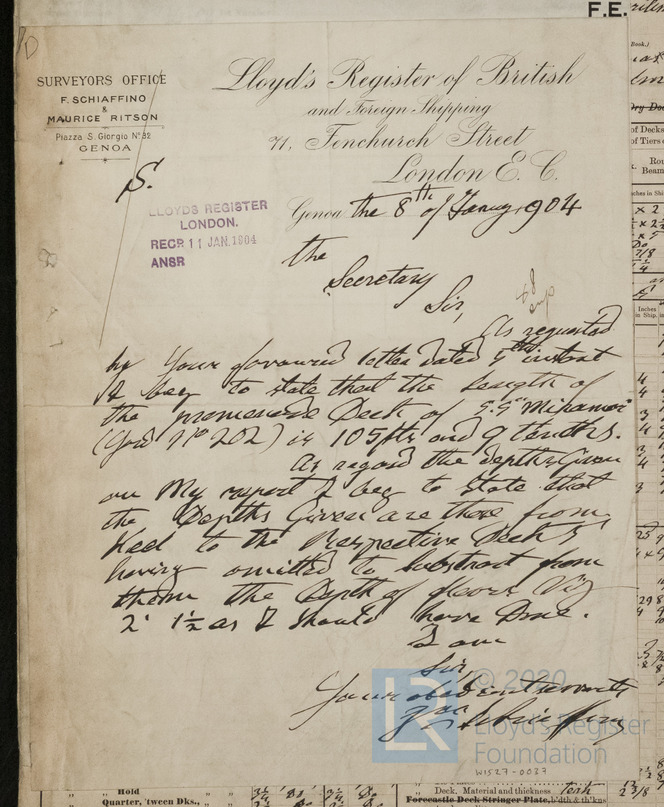 F.E.
SURVEYORS OFFICE
F. SCHIAFFINO
&
MAURICE RITSON
Piazza S. Giorgio No 32
GENOA
Lloyd's Register of British
and Foreign Shipping
71, Fenchurch Street
London E. C.
S.
LLOYDS REGISTER
LONDON.
RECD 11 JAN. 1904
ANSR
Genoa the 8th of January 1904
the
Secretary
Sir,
As requested
by your favoured letter dated 5th instant
I beg to state that the Length of
the promenade Deck of S.S "Miramar"
(Yard No 202) is 105 fts and 9 tenths.
As regard the depths Given
on My report I beg to State that
the Depths Given are those from
Keel to the Respective Decks
having omitted to Substract from
them the Depth of floors Viz
2' 1½ as I Should have Done.
I am
Sir,
Your obedient servant
© 2020
LR
Lloyd's Register
Foundation
W1527-0037
Hold
Quarter, 'tween Dks.,
Deck, Material and thickness
Forecastle Deck Stringer Plate, b'dth & th'kns